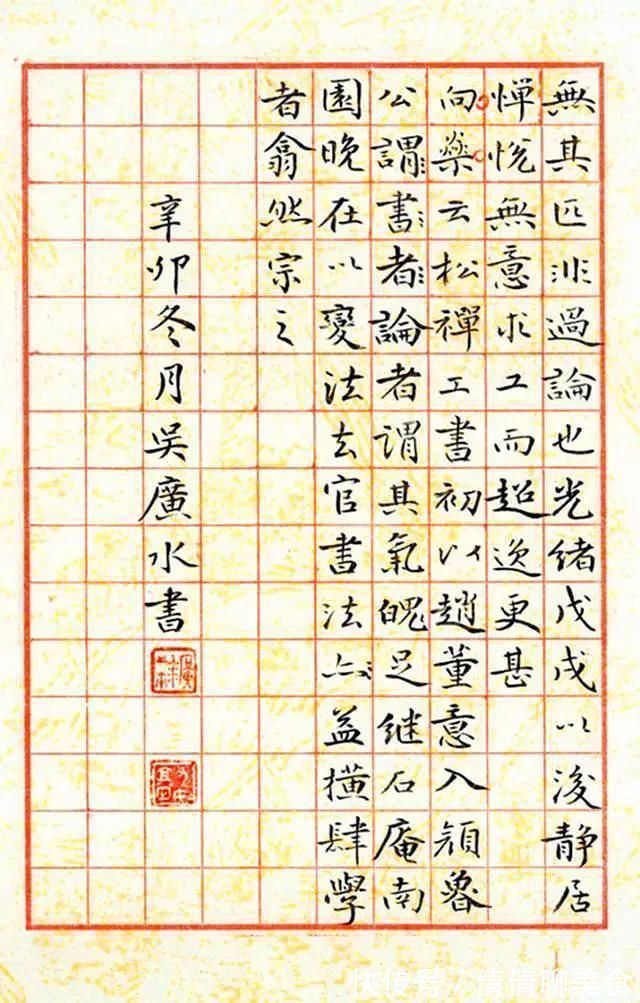 無其匹非過論也光緒戊戌以後静居
憚悅無意求工而超逸更甚
向燊云松禪工書初以趙董意入顔魯
公謂書者論者謂其氣魄足继石庵南
園晚在以變法去官書法亦益橫肆學
者翕然宗之
辛卯冬月吴廣水書
快传号/倩倩聊美食